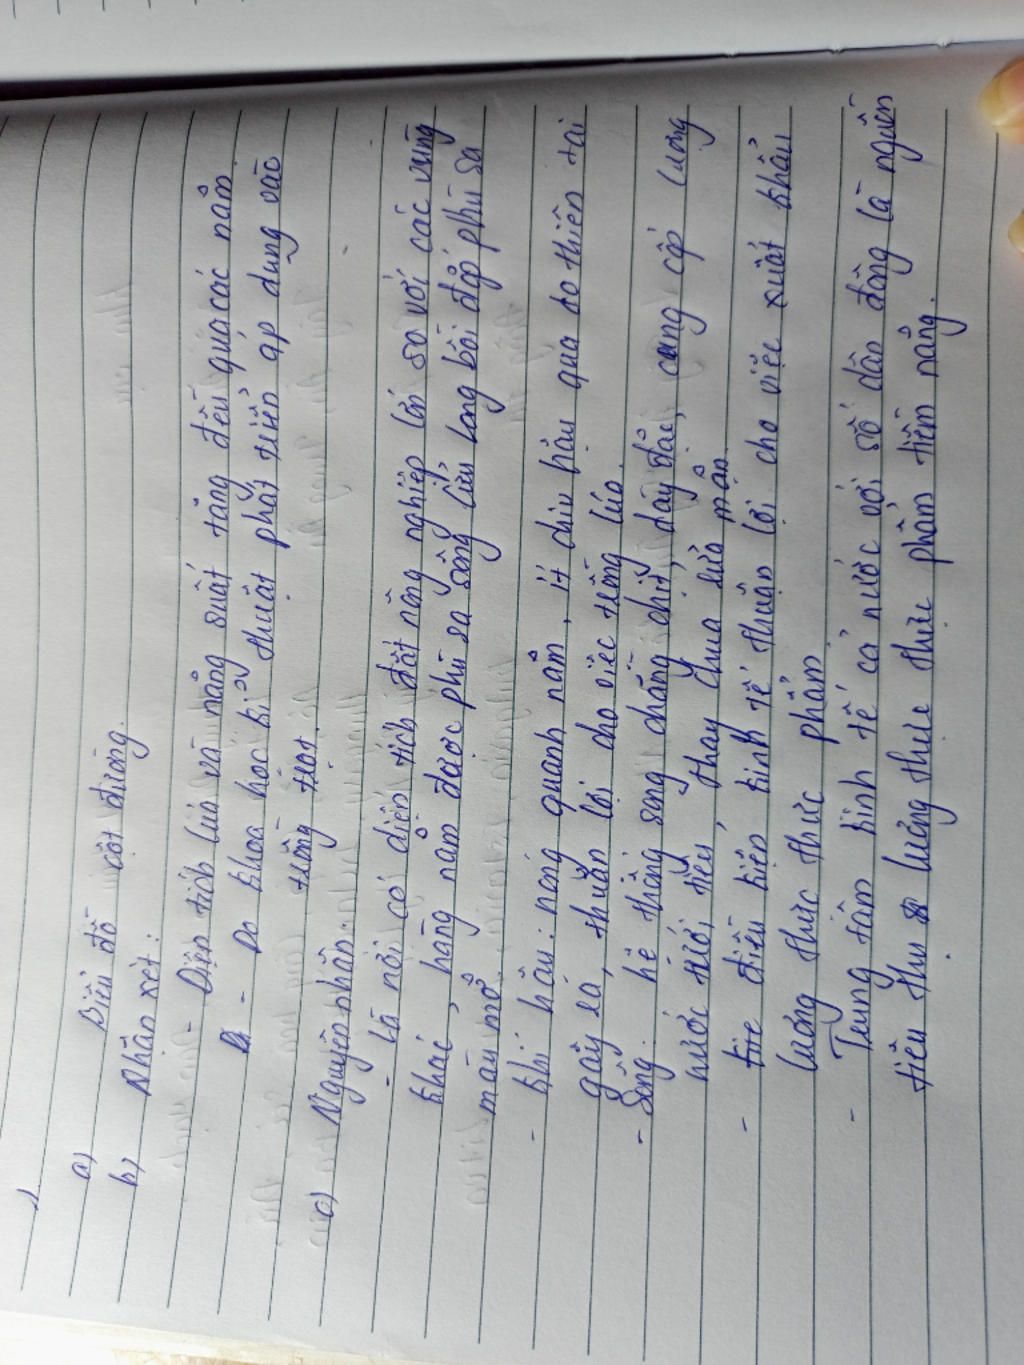 1
a) Biểu đồ cột đường.
b) Nhận xét:
- Diện tích lúa và năng suất tăng đều qua các năm
- Do khoa học kĩ thuật phát triển áp dụng vào
trồng trọt.
c) Nguyên nhân.
- là nơi có diện tích đất nông nghiệp lớn so với các vùng
khác, hàng năm được phù sa sông Cửu Long bồi đắp phù sa
màu mỡ.
- khí hậu: nóng quanh năm, ít chịu hậu quả do thiên tai
gây ra, thuận lợi cho việc trồng lúa.
- Sông: hệ thống song chằng chịt, dày đặc, cung cấp lương
nước tưới tiêu, thay chua rửa mặn
- điều kiện kinh tế thuận lợi cho việc xuất khẩu
lương thực thực phẩm
- Trung tâm kinh tế cả nước với số dân đông là nguồn
tiêu thụ lương thực thực phẩm tiềm năng.